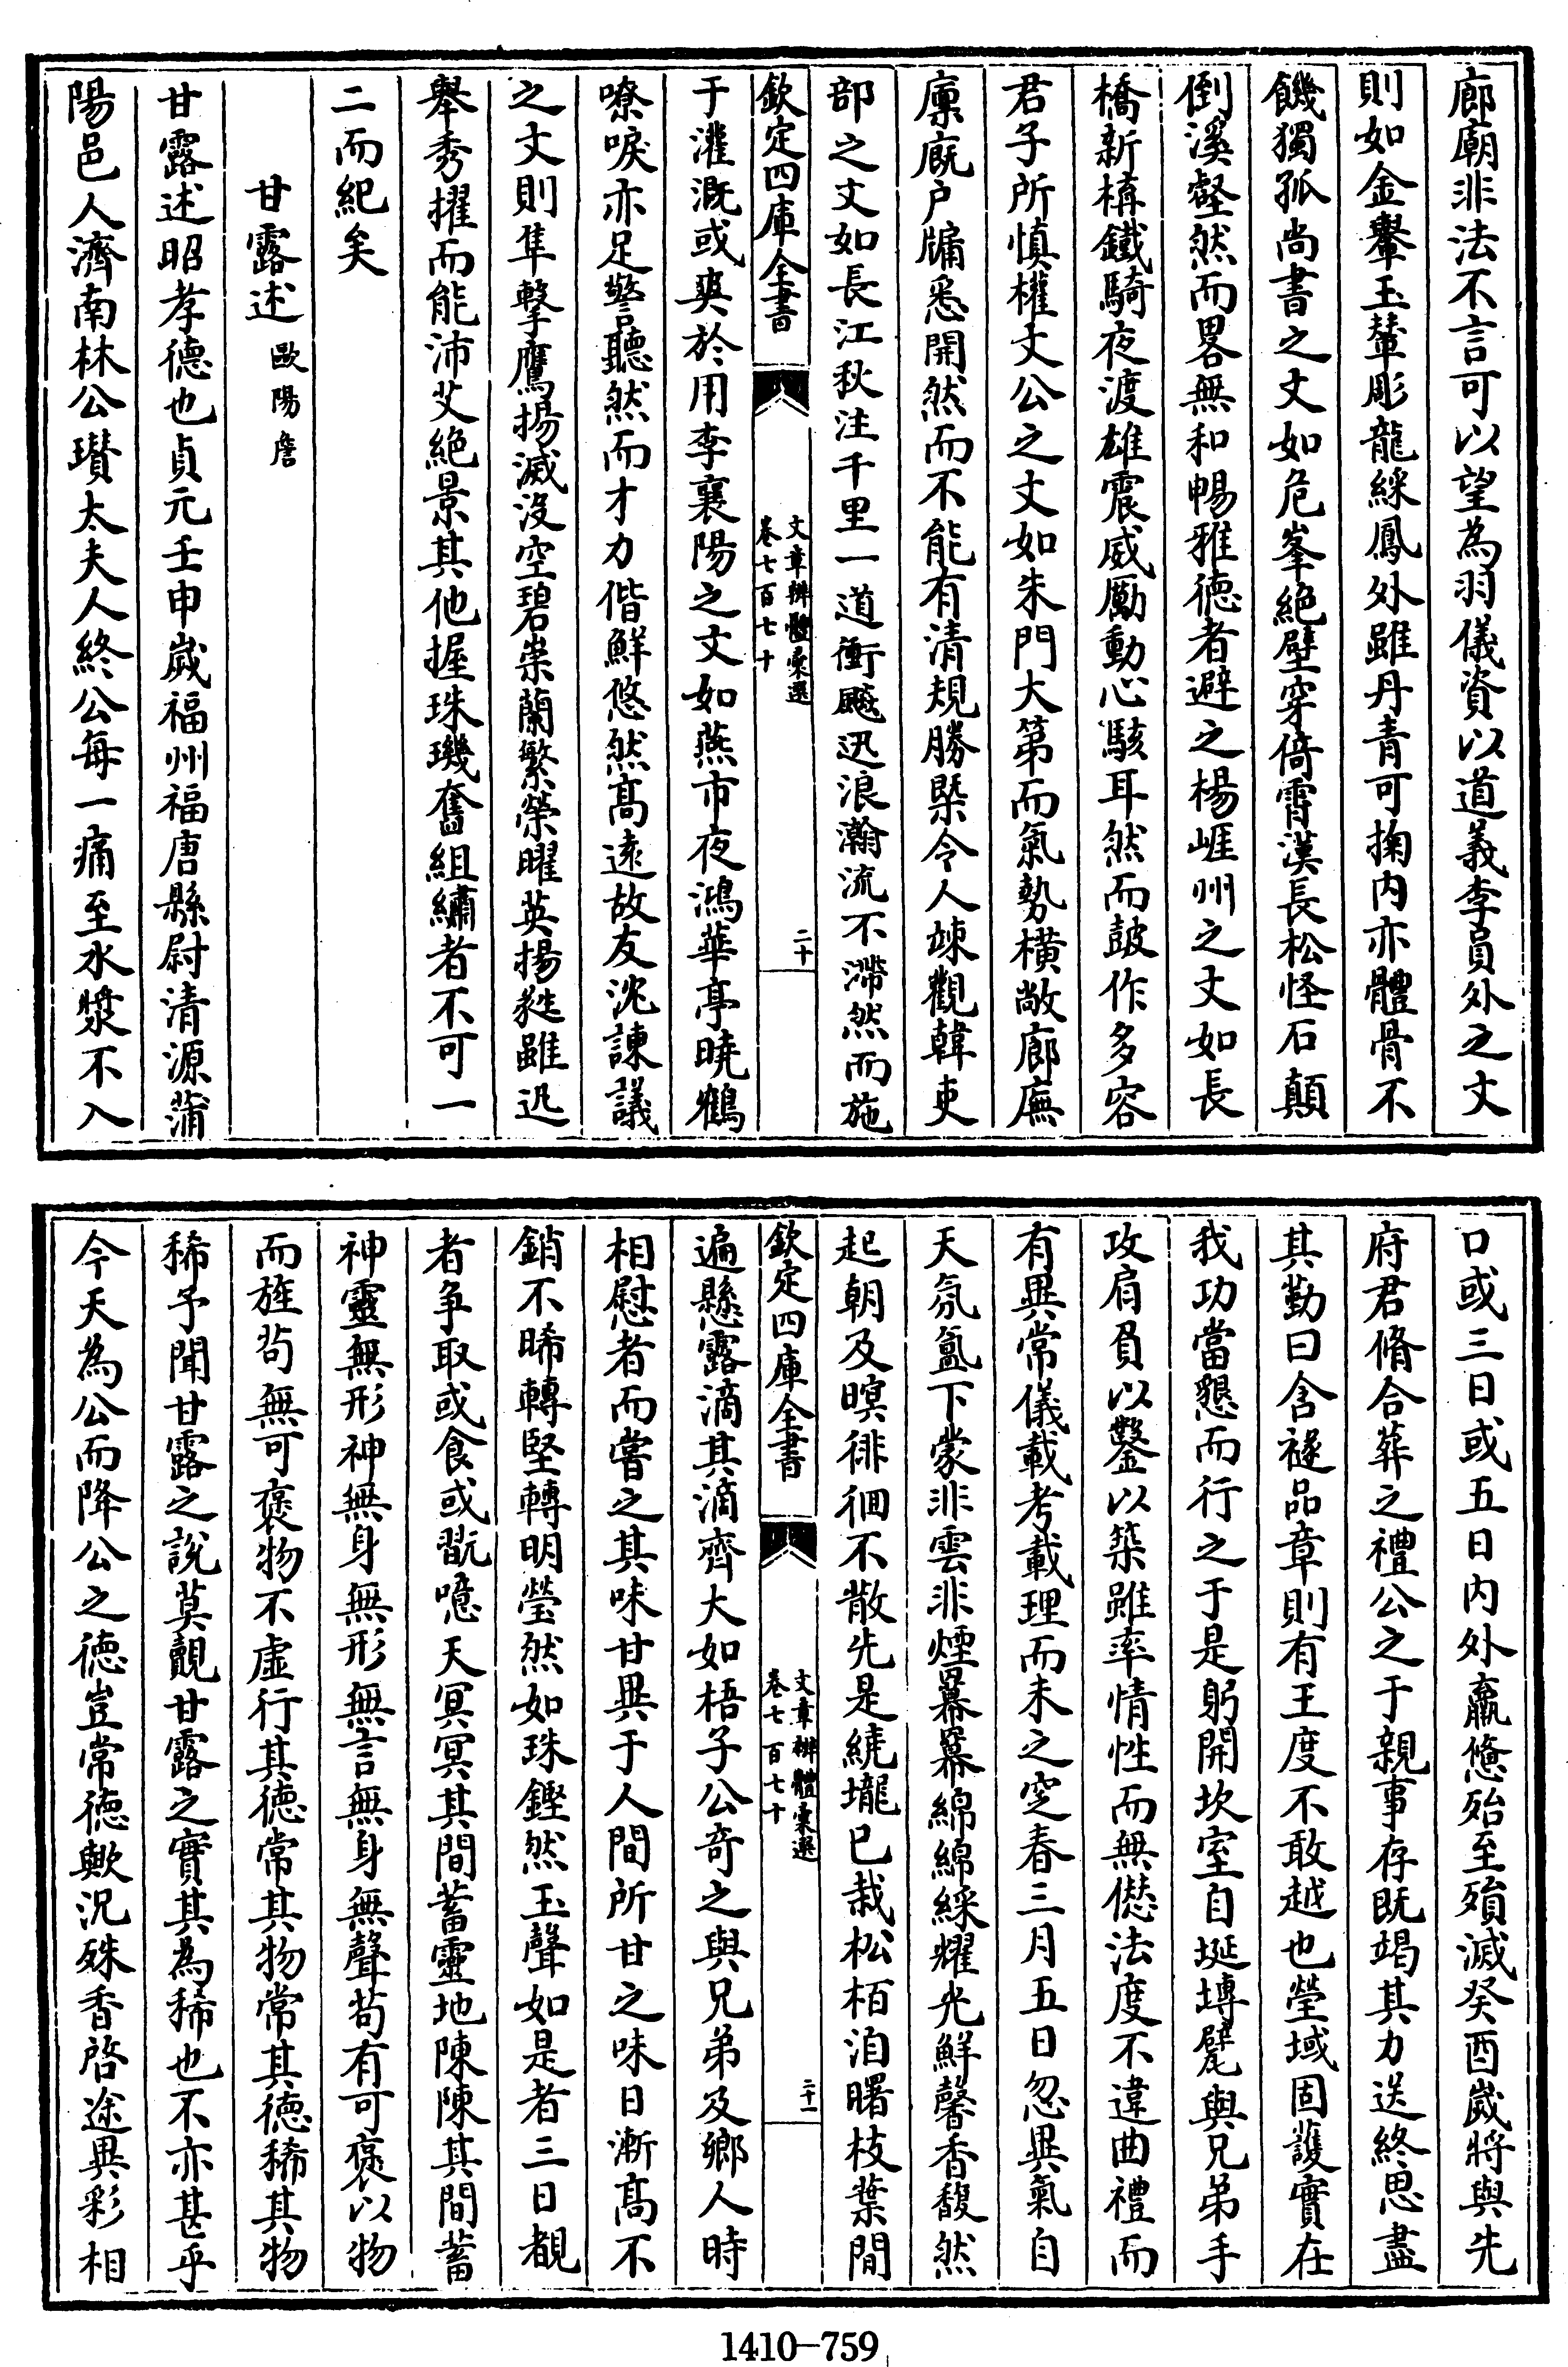 廊廟非法不言可以望為羽儀資以道義李員外之文
則如金轝玉輦彫龍綵鳳外雖丹青可掬內亦體骨不
饑獨孤尚書之文如危峯絶壁穿倚霄漢長松怪石顛
倒溪壑然而畧無和暢雅德者避之楊崖州之文如長
橋新構鐵騎夜渡雄震威厲動心駭耳然而鼓作多容
君子所慎權文公之文如朱門大第而氣勢横敞廊廡
廩廐户牖悉開然而不能有清規勝槩令人竦觀韓吏
部之文如長江秋注千里一道衝飈迅浪瀚流不滯然而施
欽定四庫全書
文章辨體彙選
卷七百七十
二十
于灌溉或爽於用李襄陽之文如燕市夜鴻華亭曉鶴
嘹唳亦足警聽然而才力偕鮮悠然高遠故友沈諫議
之文則隼擊鷹揚滅没空碧崇蘭繁榮曜英揚蕤雖迅
舉秀擢而能沛艾絶景其他握珠璣奮組繡者不可一
二而紀矣
甘露述 歐陽詹
甘露述昭孝德也貞元壬申歲福州福唐縣尉清源蒲
陽邑人濟南林公瓚太夫人終公每一痛至水漿不入
口或三日或五日内外羸憊殆至殞滅癸酉歲將與先
府君脩合葬之禮公之于親事存既竭其力送終思盡
其勤曰含襚品章則有王度不敢越也塋域固護實在
我功當懇而行之于是躬開坎室自埏塼甓與兄弟手
攻肩負以鑿以築雖率情性而無愆法度不違曲禮而
有異常儀載考載理而未之窆春三月五日忽異氣自
天氛氳下蒙非雲非煙羃羃綿綿綵耀光鮮馨香馥然
起朝及暝徘徊不散先是繞壠已栽松栢洎曙枝葉間
欽定四庫全書
文章辨體彙選
卷七百七十
二十一
遍懸露滴其滴齊大如梧子公奇之與兄弟及鄉人時
相慰者而嘗之其味甘異于人間所甘之味日漸高不
銷不晞轉堅轉明瑩然如珠鏗然玉聲如是者三日覩
者争取或食或翫噫天冥冥其間蓄靈地陳陳其間蓄
神靈無形神無身無形無言無身無聲苟有可褒以物
而旌茍無可褒物不虚行其德常其物常其德稀其物
稀予聞甘露之説莫覿甘露之實其為稀也不亦甚乎
今天為公而降公之德豈常德歟況殊香啓途異彩相
1410—759